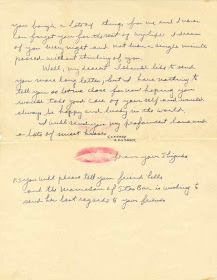 you bought a lots of things for me and I never
can forget you for the rest of my life. I dream
of you ever night and not even a single minute
passed without thinking of you.
Well, my dearest I should like to send
you more long letter, but I have nothing to
tell you so leave close for now hoping you
will take good care of your self and would
always be happy and lucky in the world.
I will send you my profoundest love and
a lots of sweet kisses.
From your
P.S you will please tell your friend
and the of Star Bar is wishing to
send her best regards to your friend